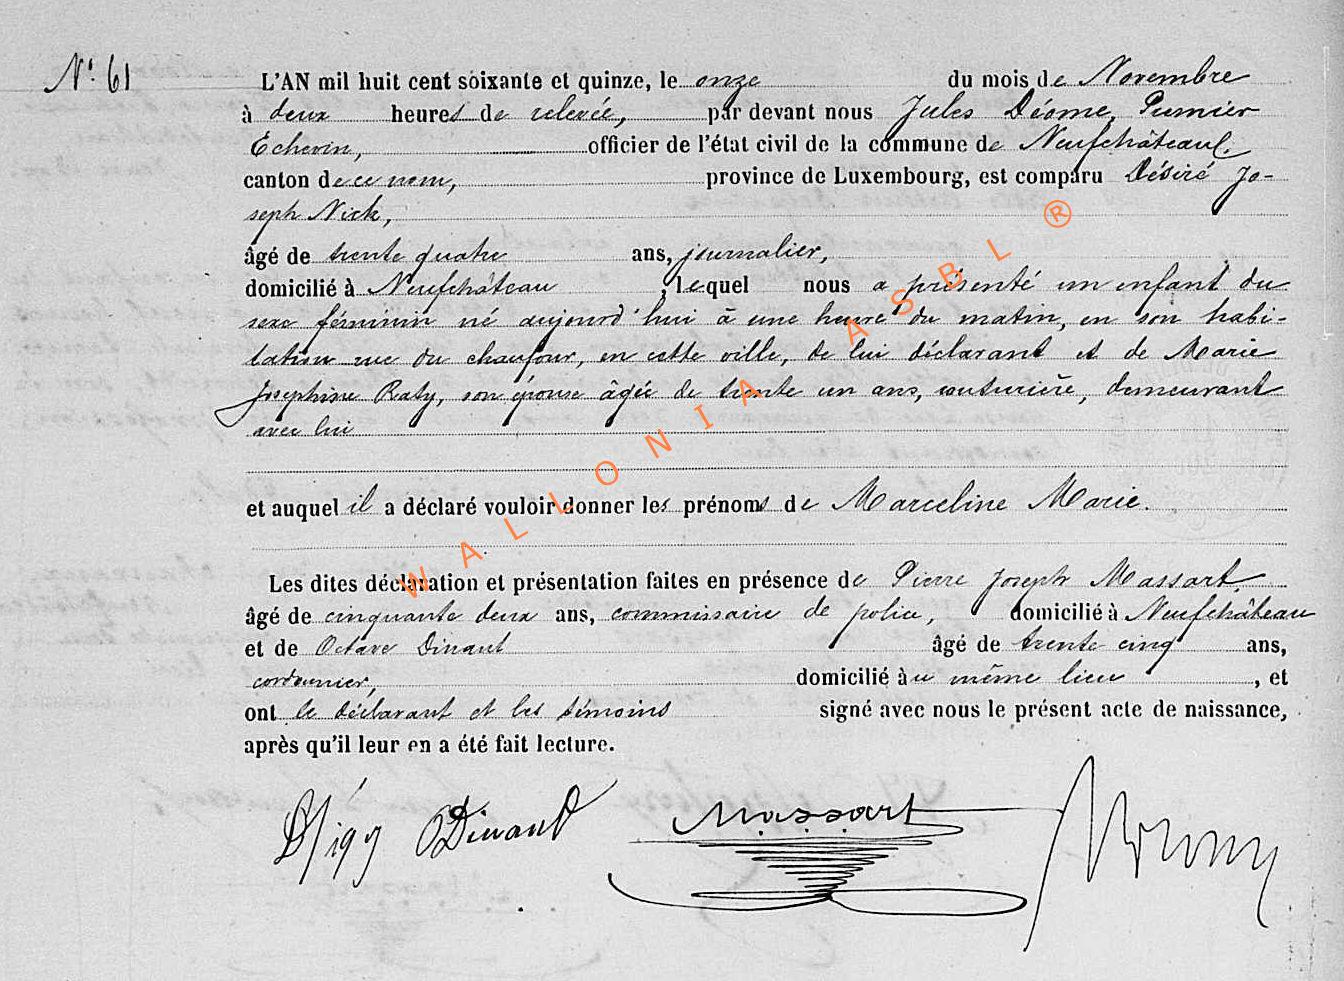 N.° 61
L'AN mil huit cent soixante et quinze, le onze du mois de Novembre
à deux heures de relevée, par devant nous Jules Déome, Premier
Echevin, officier de l'état civil de la commune de Neufchâteau,
canton de ce nom, province de Luxembourg, est comparu Désiré Jo-
seph Nick,
âgé de trente quatre ans, journalier,
domicilié à Neufchâteau, lequel nous a présenté un enfant du
sexe féminin né aujourd'hui à une heure du matin, en son habi-
tation rue du chaufour, en cette ville, de lui déclarant et de Marie
Josephine Raty, son épouse âgée de trente un ans, couturière, demeurant
avec lui
et auquel il a déclaré vouloir donner les prénoms de Marceline Marie.
Les dites déclaration et présentation faites en présence de Pierre Joseph Massart
âgé de cinquante deux ans, commissaire de police, domicilié à Neufchâteau
et de Octave Dinant âgé de trente cinq ans,
cordonnier, domicilié au même lieu, et
ont le déclarant et les témoins signé avec nous le présent acte de naissance,
après qu'il leur en a été fait lecture.
ODinant Massart
WALLONIA ASBL ®